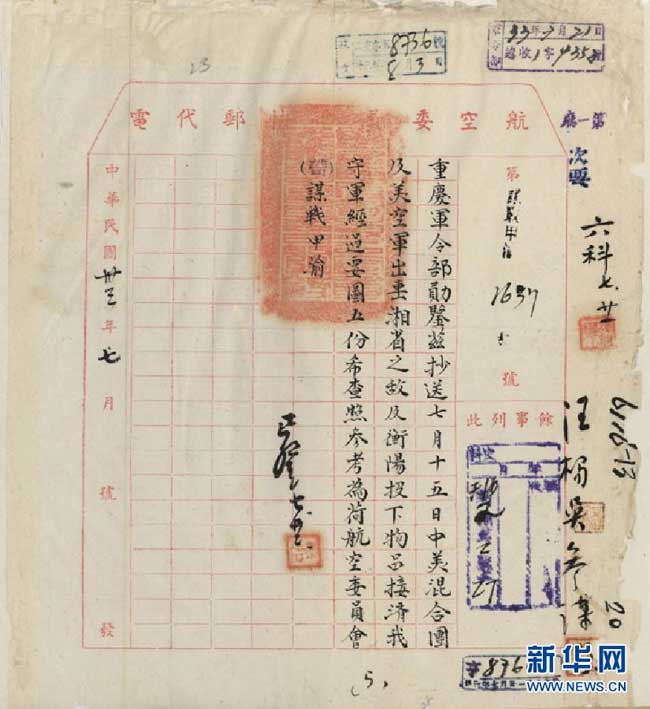 33年7月21日
總收1字4358號
8736
8月3日
23
航空委員會快郵代電
第一處
次要
六科 七.廿一
第
謀戰甲
1637
號
餘事列此
重慶軍令部勛鑒茲抄送七月十五日中美混合團
及美空軍出擊湘省之敵及衡陽投下物品接濟我
守軍經過要圖五份希查照參考為荷航空委員會
謀戰甲渝
中華民國卅三年七月 號發
6116-13
20
27
字836
(5)
新华网
WWW.NEWS.CN